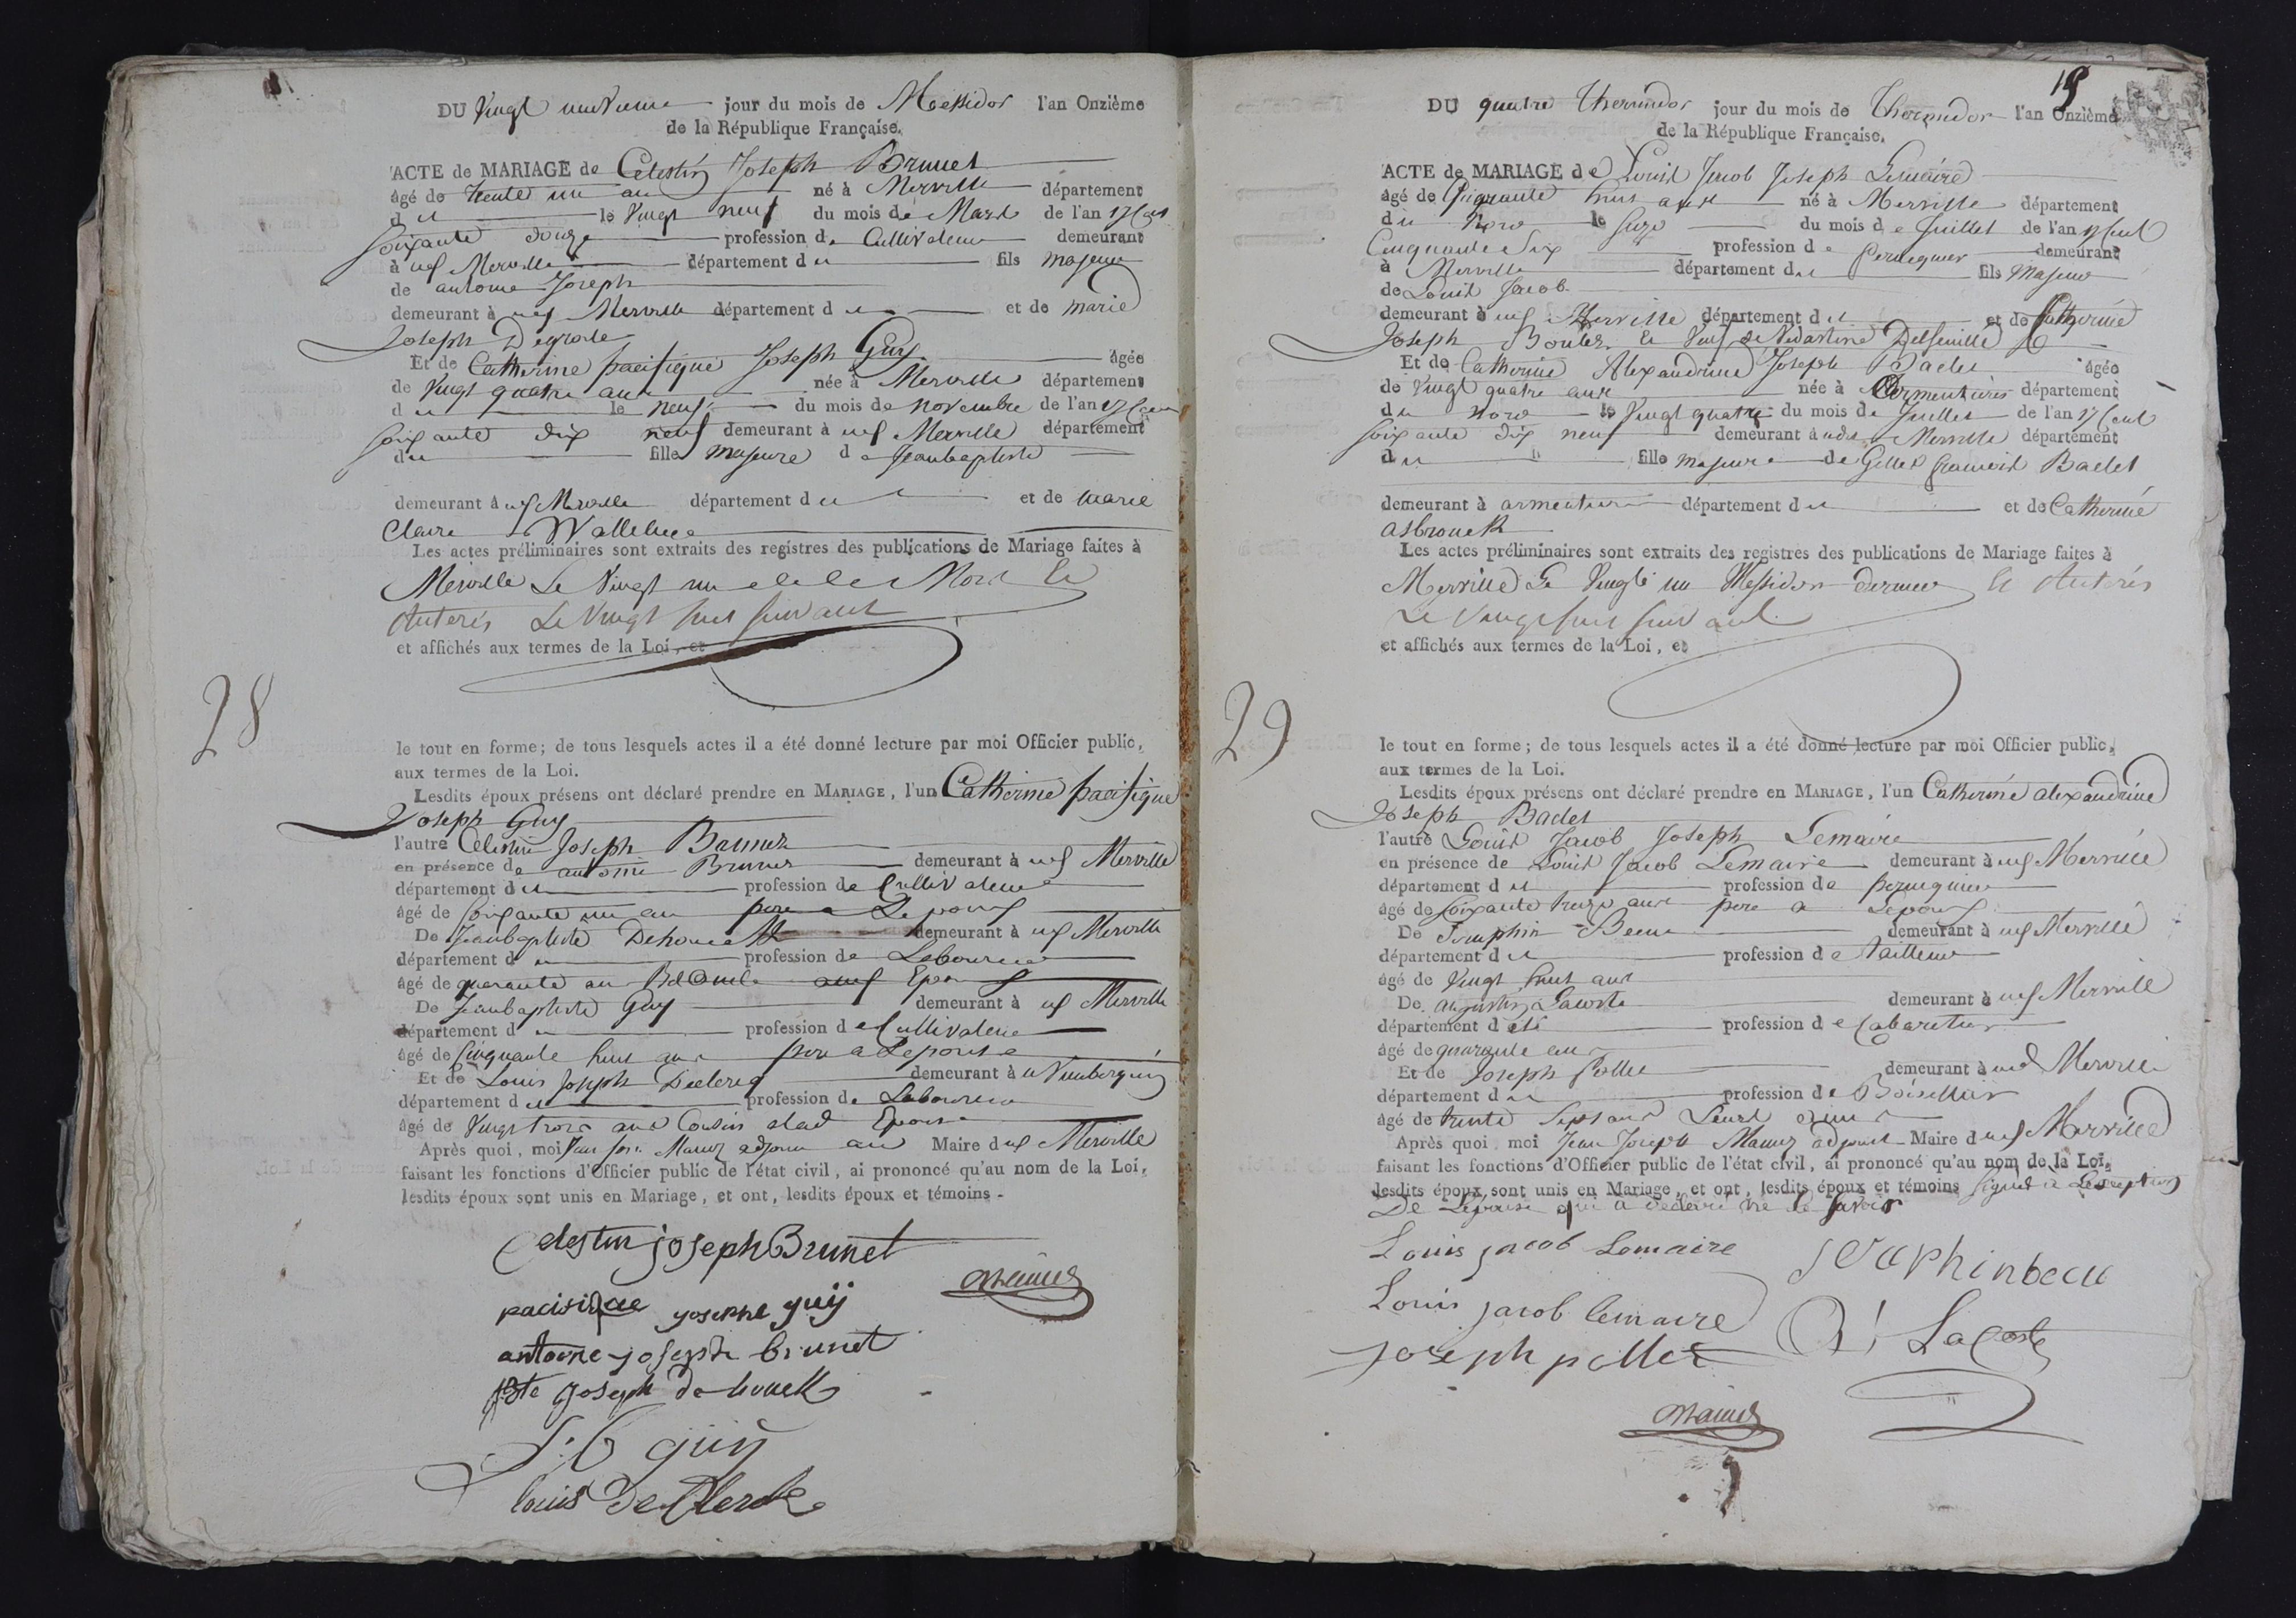 DU Vingt neuvieme jour du mois de Messidor l'an Onzième
de la République Française.
ACTE de MARIAGE de Celestin Joseph Brunet
âgé de trente un an né à Merville département
d le Vingt neuf du mois de Mars de l'an 17 Cent
soixante douze profession de Cultivateur demeurant
à Merville département du fils majeur
de antoine Joseph
demeurant à Merville département d et de marie
Joseph
Et de Catherine pacifique Joseph Guy âgée
de Vingt quatre ans née à Merville département
d le neuf du mois de novembre de l'an 17 Cent
soixante dix neuf demeurant à Merville département
du fille majeure de Jeanbaptiste
demeurant à Merville département du et de marie
Claire
Les actes préliminaires sont extraits des registres des publications de Mariage faites à
Merville Le Vingt un
Le Vingt huit suivant
et affichés aux termes de la Loi, et
28
le tout en forme; de tous lesquels actes il a été donné lecture par moi Officier public,
aux termes de la Loi.
Lesdits époux présens ont déclaré prendre en MARIAGE, l'un Catherine pacifique
Joseph Guy
l'autre Celestin Joseph Brunet
en présence de antoine Brunet demeurant à Merville
département du profession de Cultivateur
âgé de soixante un an pere a Lepoux
De Jeanbaptiste Dehouck demeurant à Merville
département d profession de Laboureur
âgé de quarante an
De Jeanbaptiste Guy demeurant à Merville
département d profession de Cultivateur
âgé de Cinquante huit ans pere a Lepouse
Et de Louis Joseph Declercq demeurant à
département du profession de Laboureur
âgé de Vingt trois ans Cousin
Après quoi, moi Jean Adjoint au Maire d Merville
faisant les fonctions d'Officier public de l'état civil, ai prononcé qu'au nom de la Loi,
lesdits époux sont unis en Mariage, et ont, lesdits époux et témoins
Celestin joseph Brunet
pacifique josephe guÿ
antoine joseph brunet
joseph dehouck
guÿ
louis declerck
19
DU quatre Thermidor jour du mois de Thermidor l'an Onzième
de la République Française.
ACTE de MARIAGE de Louis Jacob Joseph Lemaire
âgé de quarante huit ans né à Merville département
du Nord le seize du mois de Juillet de l'an 17 Cent
Cinquante six profession de perruquier demeurant
à Merville département du fils majeur
de Louis Jacob
demeurant à Merville département du et de Catherine
Joseph
Et de Catherine Alexandrine Joseph Baclet âgée
de Vingt quatre ans née à Armentieres département
du Nord le Vingt quatre du mois de Juillet de l'an 17 Cent
soixante dix neuf demeurant à Merville département
du fille majeure de Gilles francois Baclet
demeurant à armentieres département du et de Catherine
asbrouck
Les actes préliminaires sont extraits des registres des publications de Mariage faites à
Merville Le Vingt un Messidor dernier
Le Vingt huit suivant
et affichés aux termes de la Loi, et
29
le tout en forme; de tous lesquels actes il a été donné lecture par moi Officier public,
aux termes de la Loi.
Lesdits époux présens ont déclaré prendre en MARIAGE, l'un Catherine alexandrine
Joseph Baclet
l'autre Louis Jacob Joseph Lemaire
en présence de Louis Jacob Lemaire demeurant à Merville
département du profession de perruquier
âgé de soixante treize ans pere a Lepoux
De demeurant à Merville
département du profession de tailleur
âgé de Vingt huit ans
De augustin Lacoste demeurant à Merville
département du profession de Cabaretier
âgé de quarante an
Et de Joseph Pollet demeurant à Merville
département du profession de
âgé de trente sept ans
Après quoi, moi Jean Joseph adjoint Maire d Merville
faisant les fonctions d'Officier public de l'état civil, ai prononcé qu'au nom de la Loi,
lesdits époux sont unis en Mariage, et ont, lesdits époux et témoins signé a Lexception
De Lepouse qui a declaré ne le savoir
Louis jacob Lemaire
Louis jacob lemaire
joseph pollet
LaCoste